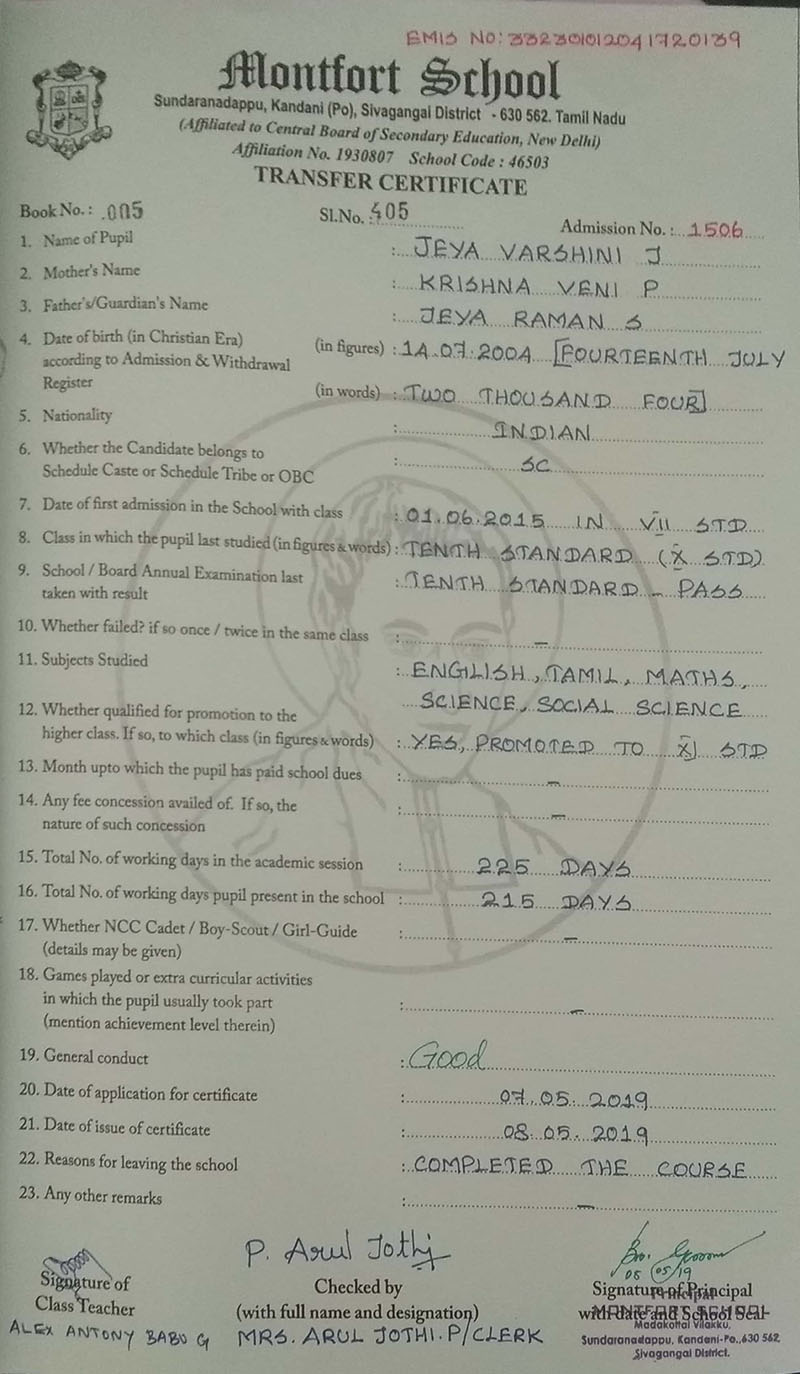 EMIS NO: 332301012041720139
Montfort School
Sundaranadappu, Kandani (Po), Sivagangai District - 630 562. Tamil Nadu
(Affiliated to Central Board of Secondary Education, New Delhi)
Affiliation No. 1930807 School Code : 46503
TRANSFER CERTIFICATE
Book No. : .005 Sl.No. 405 Admission No. : 1506
1. Name of Pupil : JEYA VARSHINI J
2. Mother's Name : KRISHNA VENI P
3. Father's/Guardian's Name : JEYA RAMAN S
4. Date of birth (in Christian Era) (in figures) : 14.07.2004 [FOURTEENTH JULY
according to Admission & Withdrawal
Register (in words) : TWO THOUSAND FOUR]
5. Nationality : INDIAN
6. Whether the Candidate belongs to
Schedule Caste or Schedule Tribe or OBC : SC
7. Date of first admission in the School with class : 01.06.2015 IN VII STD
8. Class in which the pupil last studied (in figures & words) : TENTH STANDARD (X STD)
9. School / Board Annual Examination last
taken with result : TENTH STANDARD - PASS
10. Whether failed? if so once / twice in the same class : -
11. Subjects Studied : ENGILISH, TAMIL, MATHS,
SCIENCE, SOCIAL SCIENCE
12. Whether qualified for promotion to the
higher class. If so, to which class (in figures & words) : YES, PROMOTED TO XI STD
13. Month upto which the pupil has paid school dues : -
14. Any fee concession availed of. If so, the
nature of such concession : -
15. Total No. of working days in the academic session : 225 DAYS
16. Total No. of working days pupil present in the school : 215 DAYS
17. Whether NCC Cadet / Boy-Scout / Girl-Guide : -
(details may be given)
18. Games played or extra curricular activities
in which the pupil usually took part : -
(mention achievement level therein)
19. General conduct : Good
20. Date of application for certificate : 07.05.2019
21. Date of issue of certificate : 08.05.2019
22. Reasons for leaving the school : COMPLETED THE COURSE
23. Any other remarks : -
P. Arul Jothi
08/05/19
Signature of Class Teacher
ALEX ANTONY BABU G
Checked by
(with full name and designation)
MRS. ARUL JOTHI.P/CLERK
Signature of Principal
with date and School Seal
Principal
MONTFORT SCHOOL
Madakottai Vilakku,
Sundaranadappu, Kandani-Po.,630 562,
Sivagangai District.